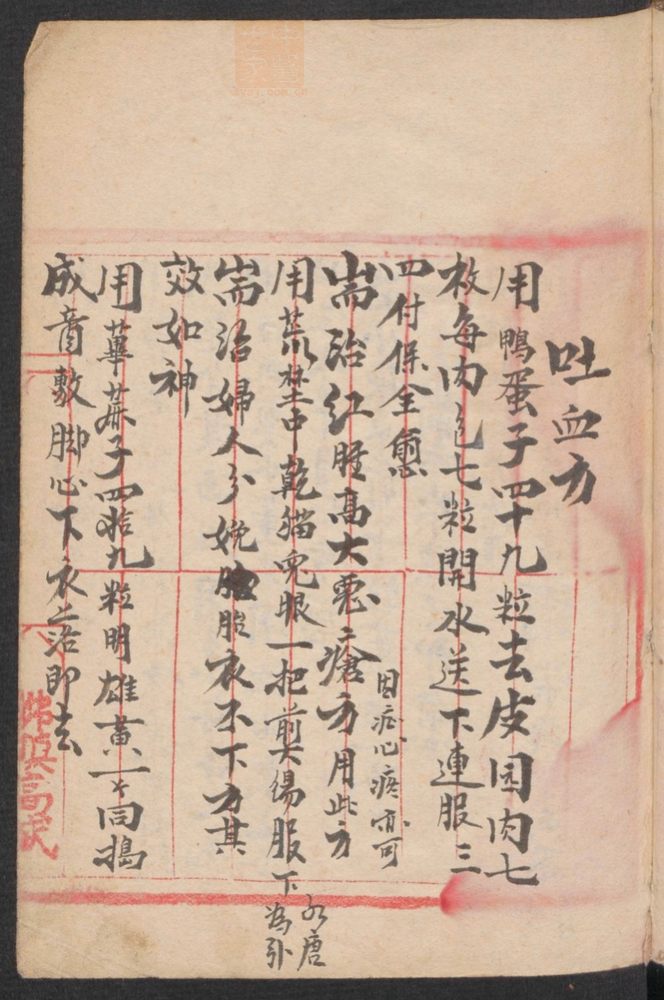 吐血方
用鴨蛋子四十九粒去皮园肉七
枚每肉包七粒開水送下連服三
四付保全愈
耑治紅腫高大惡瘡方用此方
因症心疼亦可
用荒埜中乾猫兒眼一把煎湯服下
為引
耑治婦人分娩胞衣不下方其
效如神
用萆蔴子四拾九粒明雄黄一々同搗
成膏敷脚心下衣落即去